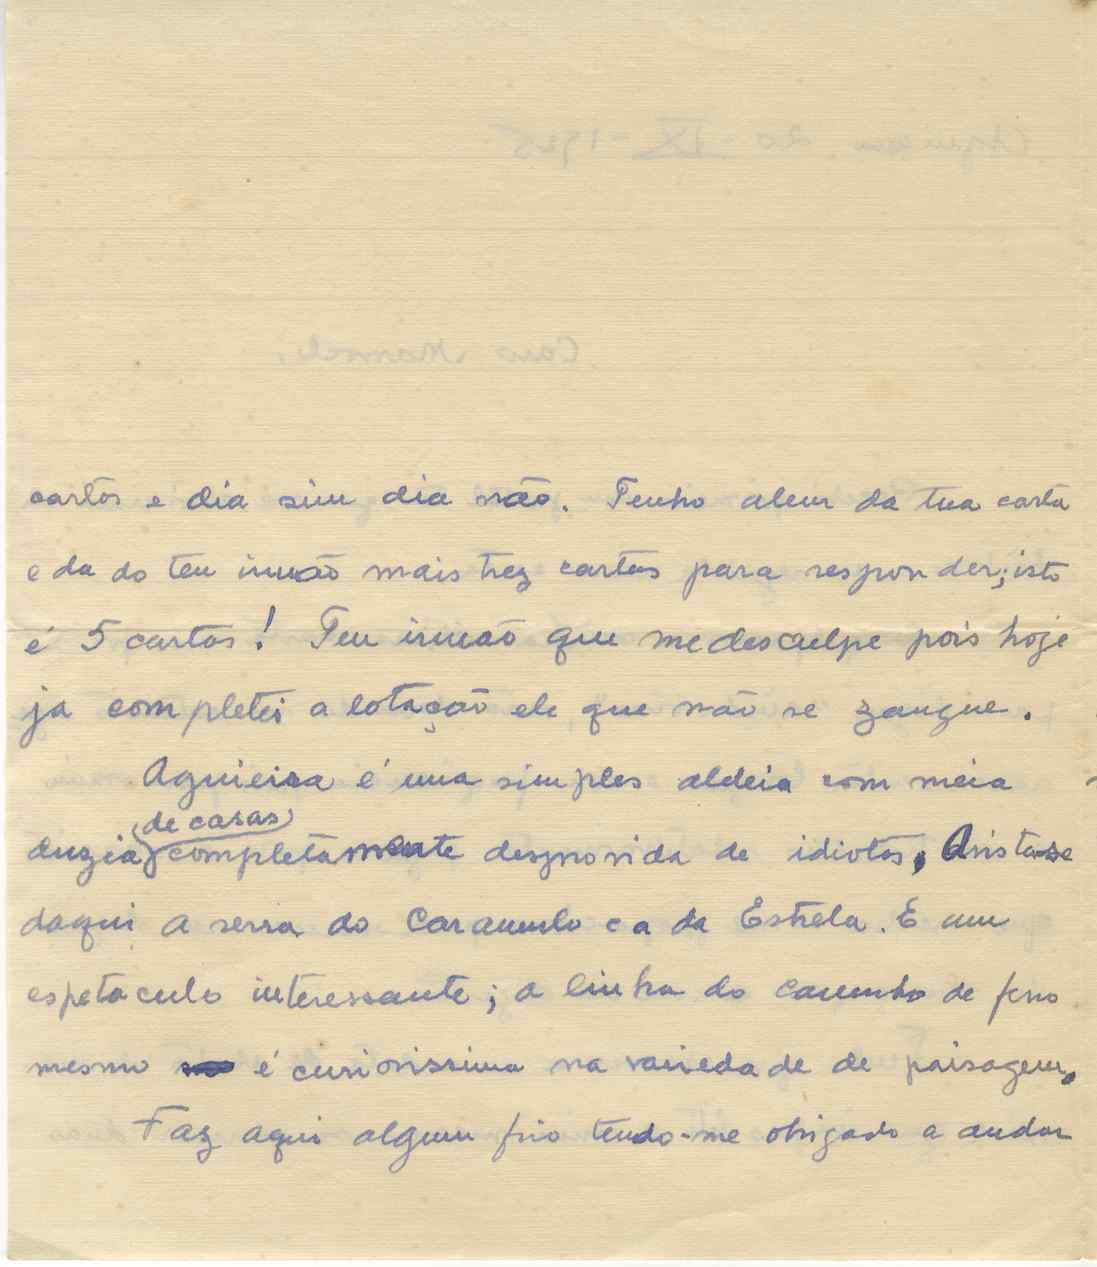 cartas e dia sim dia não. Tenho alem da tua carta
e da do teu irmão mais trez cartas para responder; isto
é 5 cartas! Teu irmão que me desculpe pois hoje
ja completei a lotação ele que não se zangue.
Aguieira é uma simples aldeia com meia
duzia de casas completamente desprovida de idiotas. Avista-se
daqui a serra do Caramulo e a da Estrela. É um
espetaculo interessante; a linha do caminho de ferro
mesmo é curiosissima na variedade de paisagem.
Faz aqui algum frio tendo-me obrigado a andar